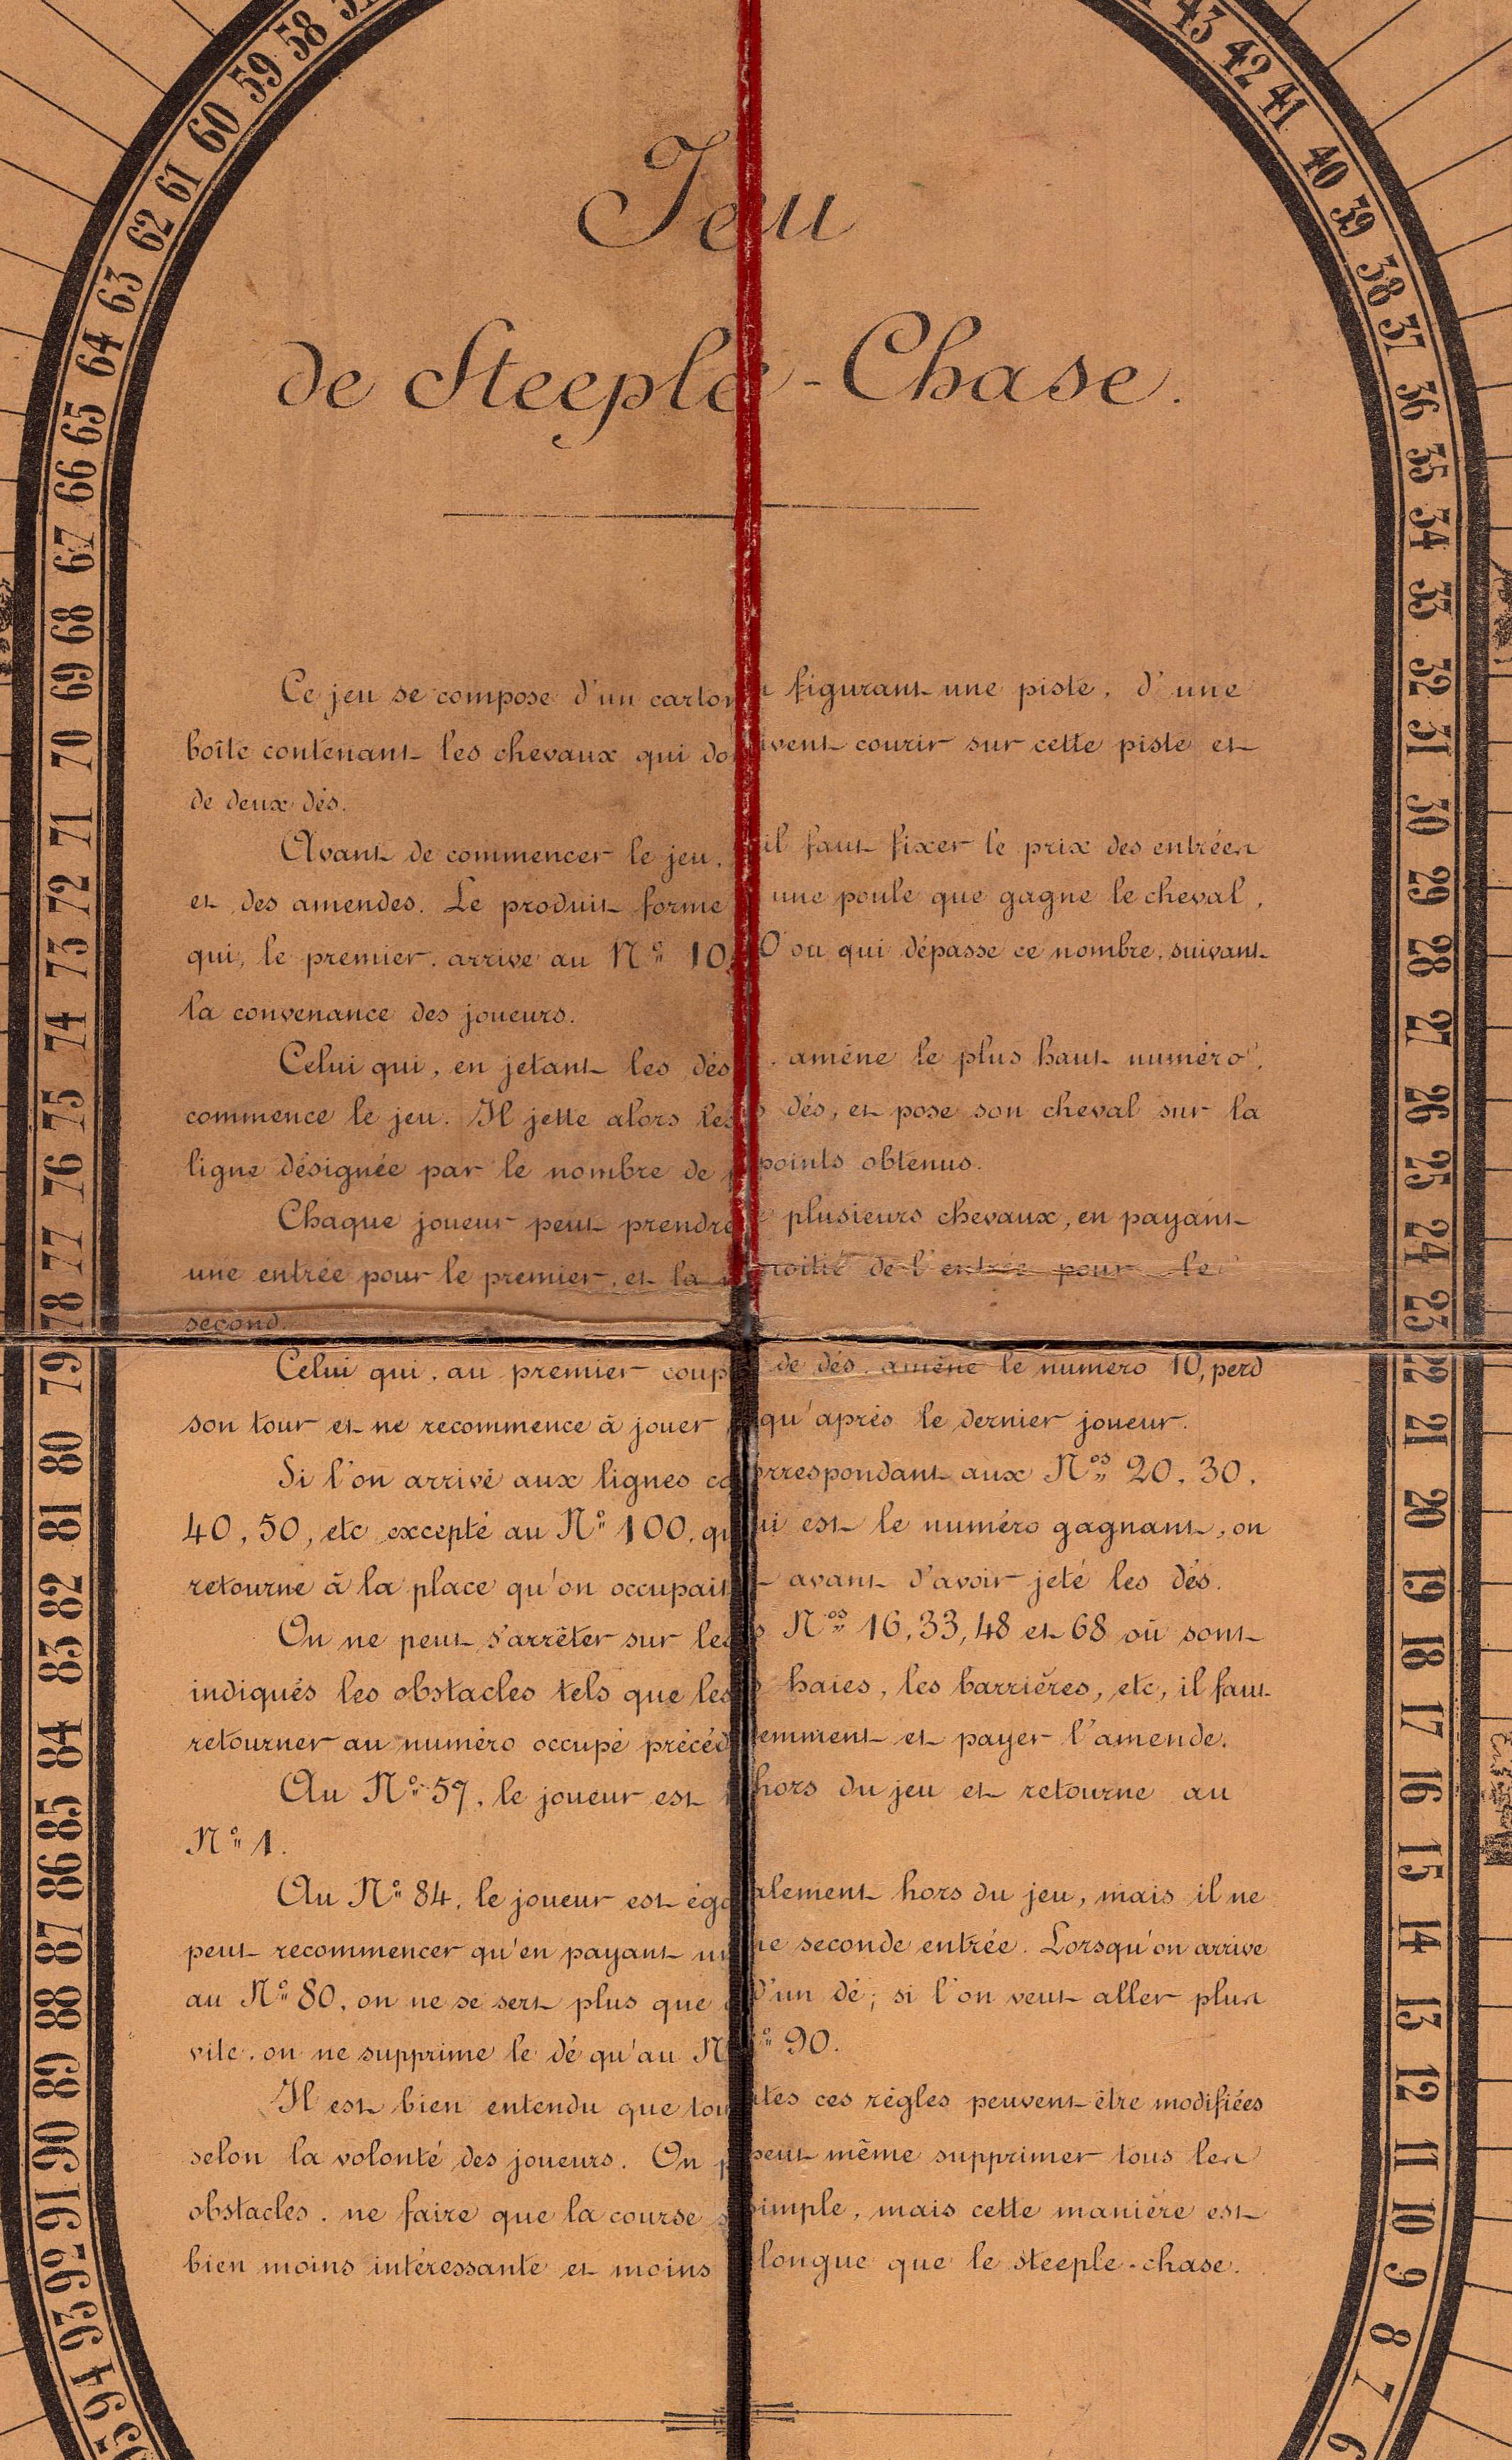 Jeu
de Steeple-Chase.
Ce jeu se compose d'un carton figurant une piste, d'une
boîte contenant les chevaux qui doivent courir sur cette piste et
de deux dés.
Avant de commencer le jeu, il faut fixer le prix des entrées
et des amendes. Le produit forme une poule que gagne le cheval,
qui, le premier, arrive au Nº 100 ou qui dépasse ce nombre, suivant
la convenance des joueurs.
Celui qui, en jetant les dés, amène le plus haut numéro,
commence le jeu. Il jette alors les dés, et pose son cheval sur la
ligne désignée par le nombre de points obtenus.
Chaque joueur peut prendre plusieurs chevaux, en payant
une entrée pour le premier, et la moitié de l'entrée pour le
second.
Celui qui, au premier coup de dés, amène le numéro 10, perd
son tour et ne recommence à jouer qu'après le dernier joueur.
Si l'on arrive aux lignes correspondant aux Nos 20, 30,
40, 50, etc excepté au Nº 100, qui est le numéro gagnant, on
retourne à la place qu'on occupait avant d'avoir jeté les dés.
On ne peut s'arrêter sur les Nos 16, 33, 48 et 68 où sont
indiqués les obstacles tels que les haies, les barrières, etc, il faut
retourner au numéro occupé précédemment et payer l'amende.
Au Nº 59, le joueur est hors du jeu et retourne au
Nº 1.
Au Nº 84, le joueur est également hors du jeu, mais il ne
peut recommencer qu'en payant une seconde entrée. Lorsqu'on arrive
au Nº 80, on ne se sert plus que d'un dé; si l'on veut aller plus
vite, on ne supprime le dé qu'au Nº 90.
Il est bien entendu que toutes ces règles peuvent être modifiées
selon la volonté des joueurs. On peut même supprimer tous les
obstacles, ne faire que la course simple, mais cette manière est
bien moins intéressante et moins longue que le steeple-chase.
6
7
8
9
10
11
12
13
14
15
16
17
18
19
20
21
22
23
24
25
26
27
28
29
30
31
32
33
34
35
36
37
38
39
40
41
42
43
58
59
60
61
62
63
64
65
66
67
68
69
70
71
72
73
74
75
76
77
78
79
80
81
82
83
84
85
86
87
88
89
90
91
92
93
94
95